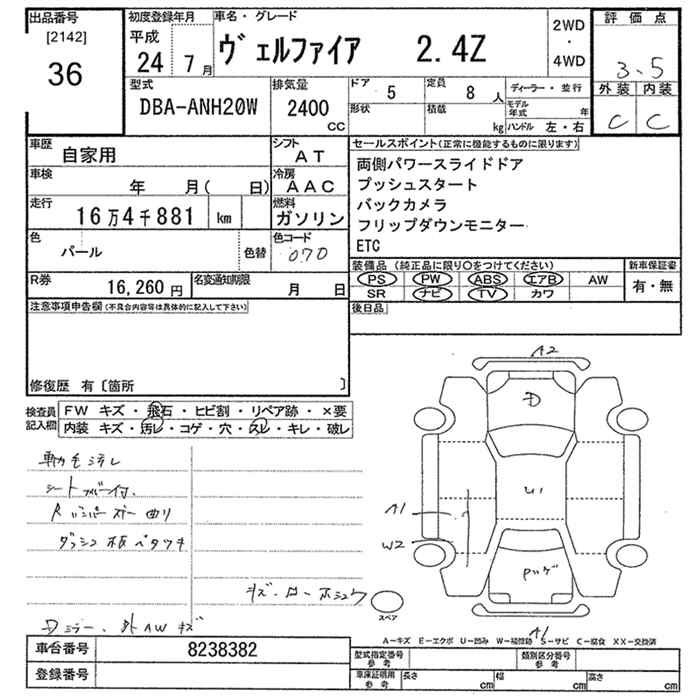 出品番号 初度登録年月 車名・グレード 2WD ・ 4WD 評価点
[2142] 平成 ヴェルファイア 2.4Z 3.5
36 24 7月 外装 内装
型式 排気量 ドア 5 定員 8人 ディーラー・並行 C C
DBA-ANH20W 2400 cc 形状 積載 kg モデル年式 年
ハンドル 左・右
車歴 自家用 シフト AT セールスポイント(正常に機能するものに限ります)
車検 年 月( 日) 冷房 AAC 両側パワースライドドア
走行 16万4千881 km 燃料 ガソリン プッシュスタート
バックカメラ
色 パール 色替 色コード 070 フリップダウンモニター
ETC
R券 16,260円 名変通知期限 月 日 装備品(純正品に限り○をつけてください) 新車保証書
PS PW ABS エアB AW 有・無
SR ナビ TV カワ
注意事項申告欄(不具合内容等は具体的に記入して下さい) 後日品
修復歴 有〔箇所 〕
検査員記入欄 FW キズ・飛石・ヒビ割・リペア跡・×要
内装 キズ・汚レ・コゲ・穴・スレ・キレ・破レ
A2
D
シートカバー付.
U1
A1
W2
ダッシュ板ベタツキ
スペア
Dミラー、外AWキズ
A1
A-キズ E-エクボ U-凹み W-補修跡 S-サビ C-腐食 XX-交換済
車台番号 8238382 型式指定番号 参考 類別区分番号 参考
登録番号 車庫証明用 参考 長さ cm 幅 cm 高さ cm